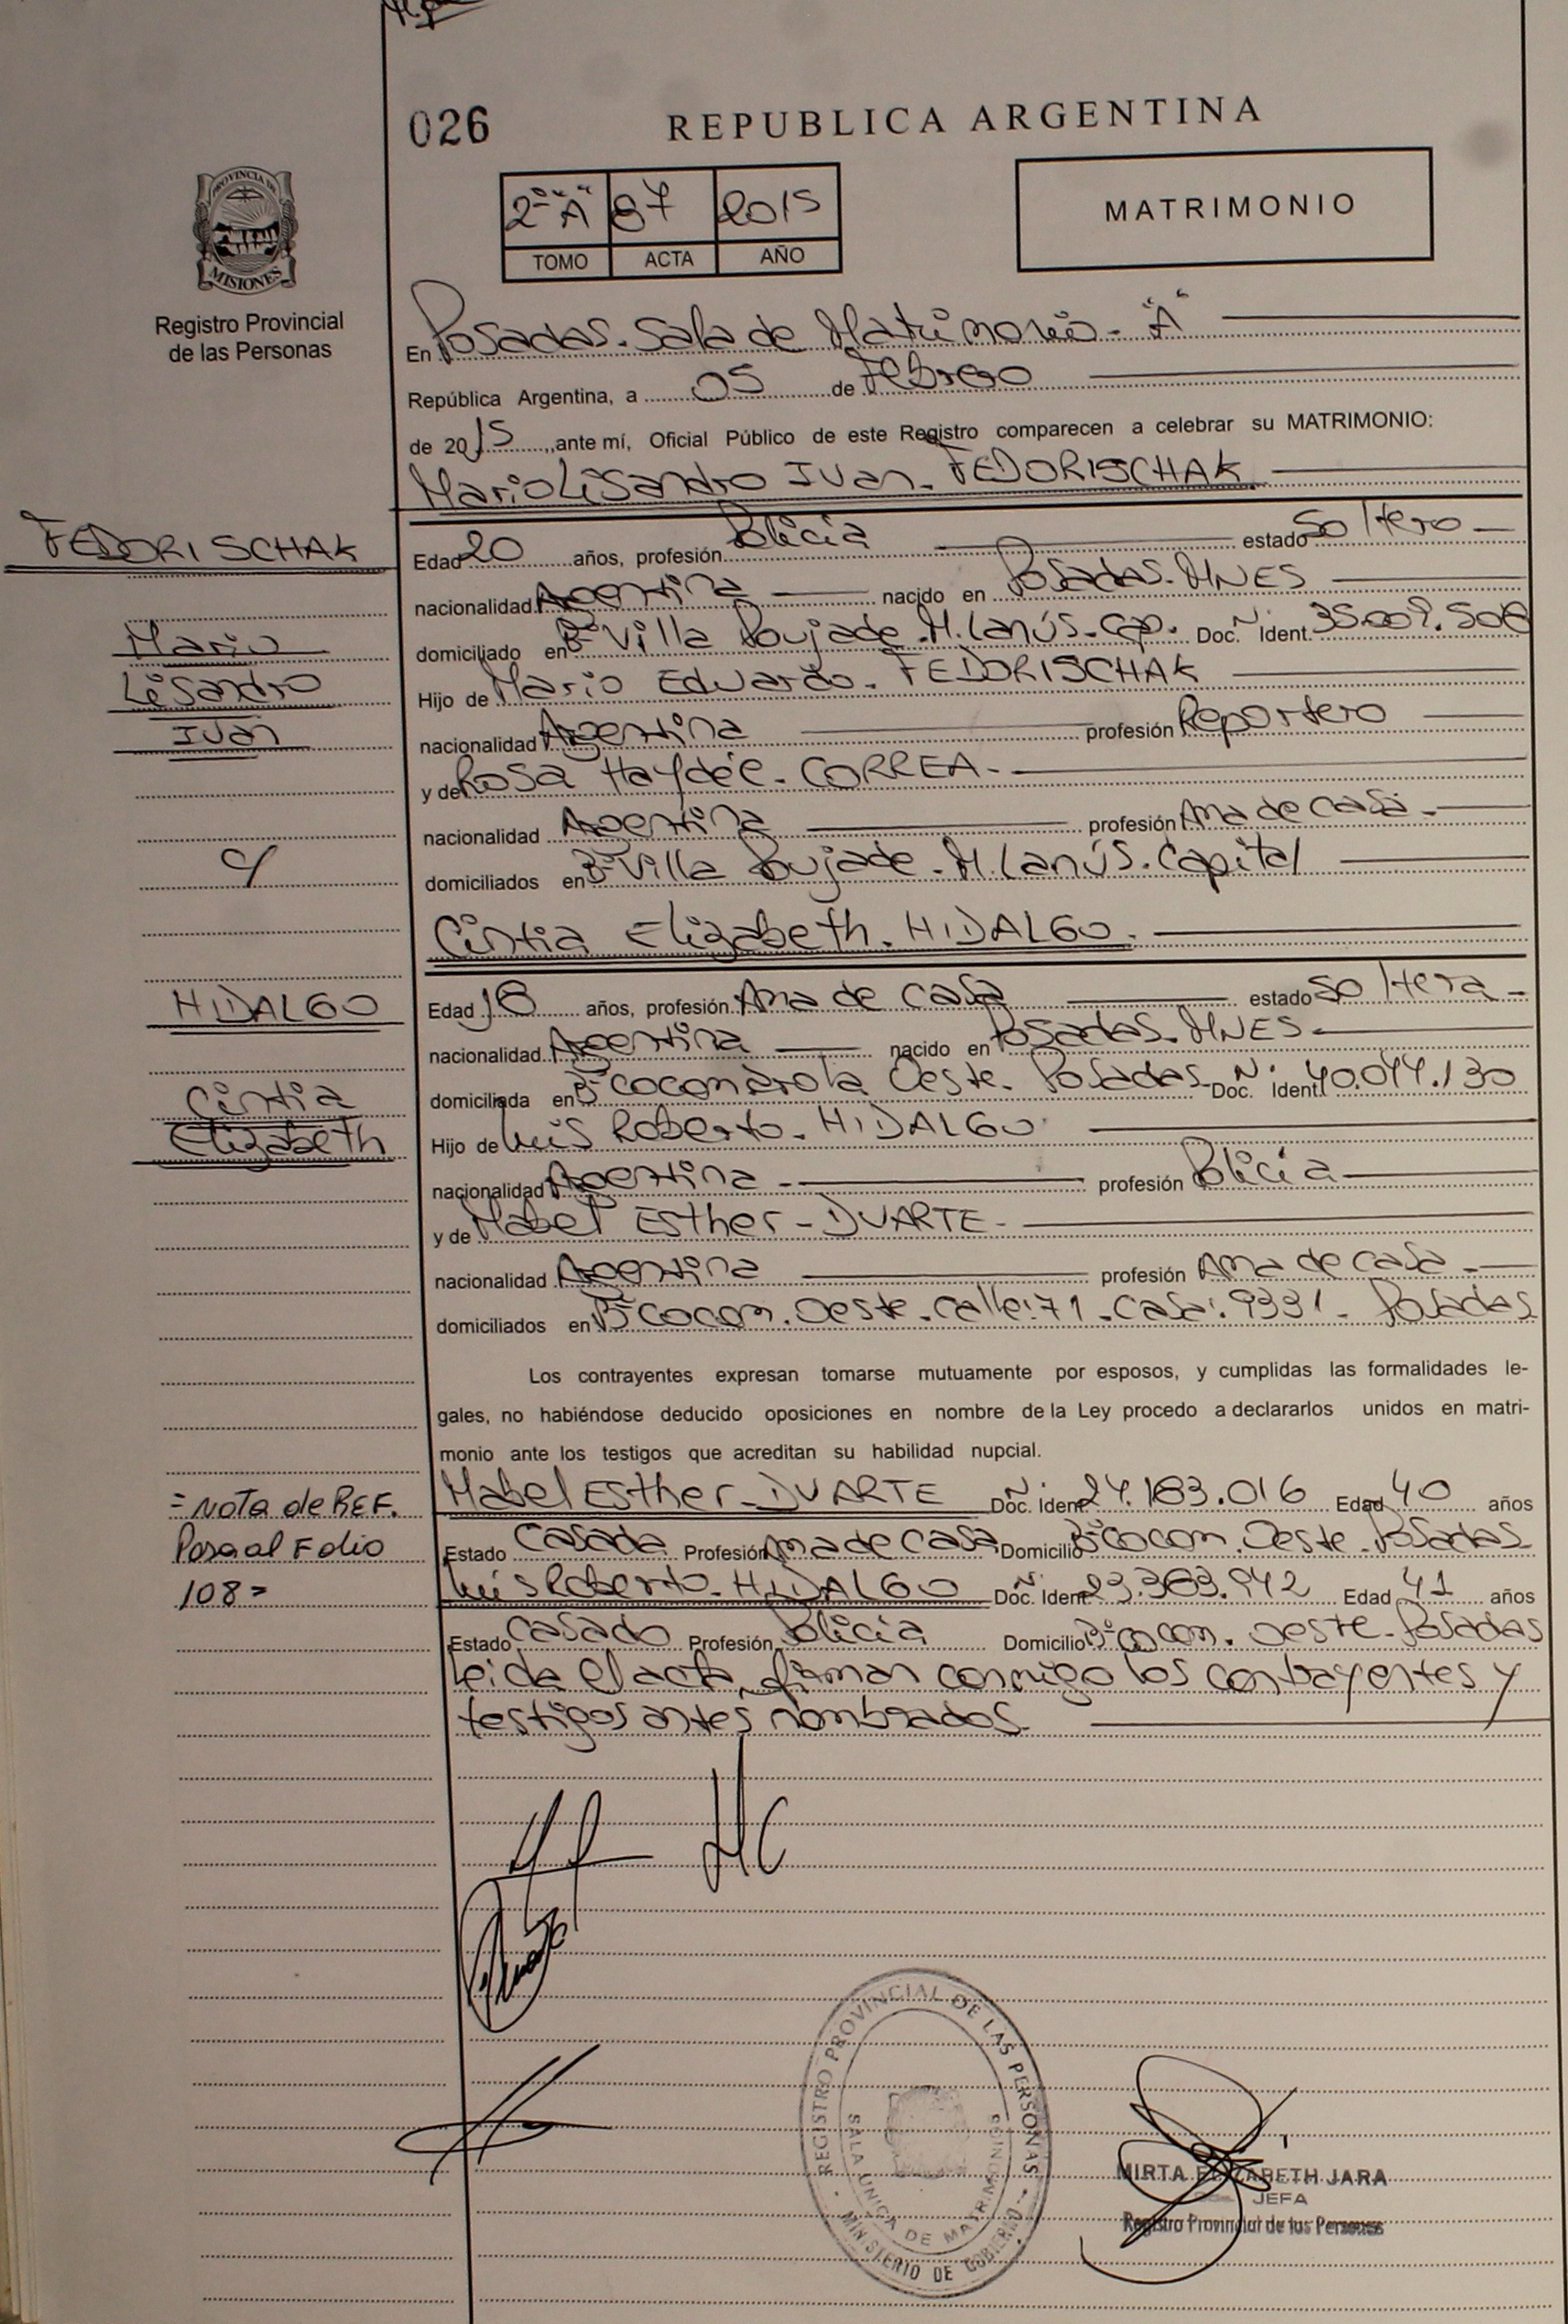 026
REPUBLICA ARGENTINA
PROVINCIA DE
MISIONES
Registro Provincial
de las Personas
2º "A" 87 2015
TOMO ACTA AÑO
MATRIMONIO
En Posadas. Sala de Matrimonio - "A"
República Argentina, a 05 de Febrero
de 2015, ante mí, Oficial Público de este Registro comparecen a celebrar su MATRIMONIO:
Mario Lisandro Ivan. FEDORISCHAK.
FEDORISCHAK
Edad 20 años, profesión Policia estado Soltero
nacionalidad Argentina nacido en Posadas. MNES
Mario
domiciliado en Bº Villa Poujade. M. Lanús. Cap. Doc. Nº Ident. 35.009.508
Lisandro
Hijo de Mario Eduardo. FEDORISCHAK
Ivan
nacionalidad Argentina profesión Reportero
y de Rosa Haydée. CORREA.
nacionalidad Argentina profesión Ama de casa.
c/
domiciliados en Bº Villa Poujade. M. Lanús. Capital
Cintia Elizabeth. HIDALGO.
HIDALGO
Edad 18 años, profesión Ama de casa estado Soltera
nacionalidad Argentina nacido en Posadas. MNES
Cintia
domiciliada en Bº Cocomarola Oeste. Posadas Doc. Nº Ident. 40.044.130
Elizabeth
Hijo de Luis Roberto. HIDALGO
nacionalidad Argentina profesión Policia
y de Mabel Esther - DUARTE -
nacionalidad Argentina profesión Ama de casa
domiciliados en Bº Cocom. Oeste. Calle: 71. Casa: 9331. Posadas
Los contrayentes expresan tomarse mutuamente por esposos, y cumplidas las formalidades le-
gales, no habiéndose deducido oposiciones en nombre de la Ley procedo a declararlos unidos en matri-
monio ante los testigos que acreditan su habilidad nupcial.
= Nota de REF.
Pasa al Folio
108 =
Mabel Esther - DUARTE Doc. Nº Ident. 24.183.016 Edad 40 años
Estado Casada Profesión Ama de casa Domicilio Bº Cocom. Oeste. Posadas
Luis Roberto. HIDALGO Doc. Nº Ident. 23.383.942 Edad 41 años
Estado Casado Profesión Policia Domicilio Bº Cocom. Oeste. Posadas
Leida el acta, firman conmigo los contrayentes y
testigos antes nombrados.
REGISTRO PROVINCIAL DE LAS PERSONAS
SALA UNICA DE MATRIMONIOS
MINISTERIO DE GOBIERNO
MIRTA ELIZABETH JARA
JEFA
Registro Provincial de las Personas